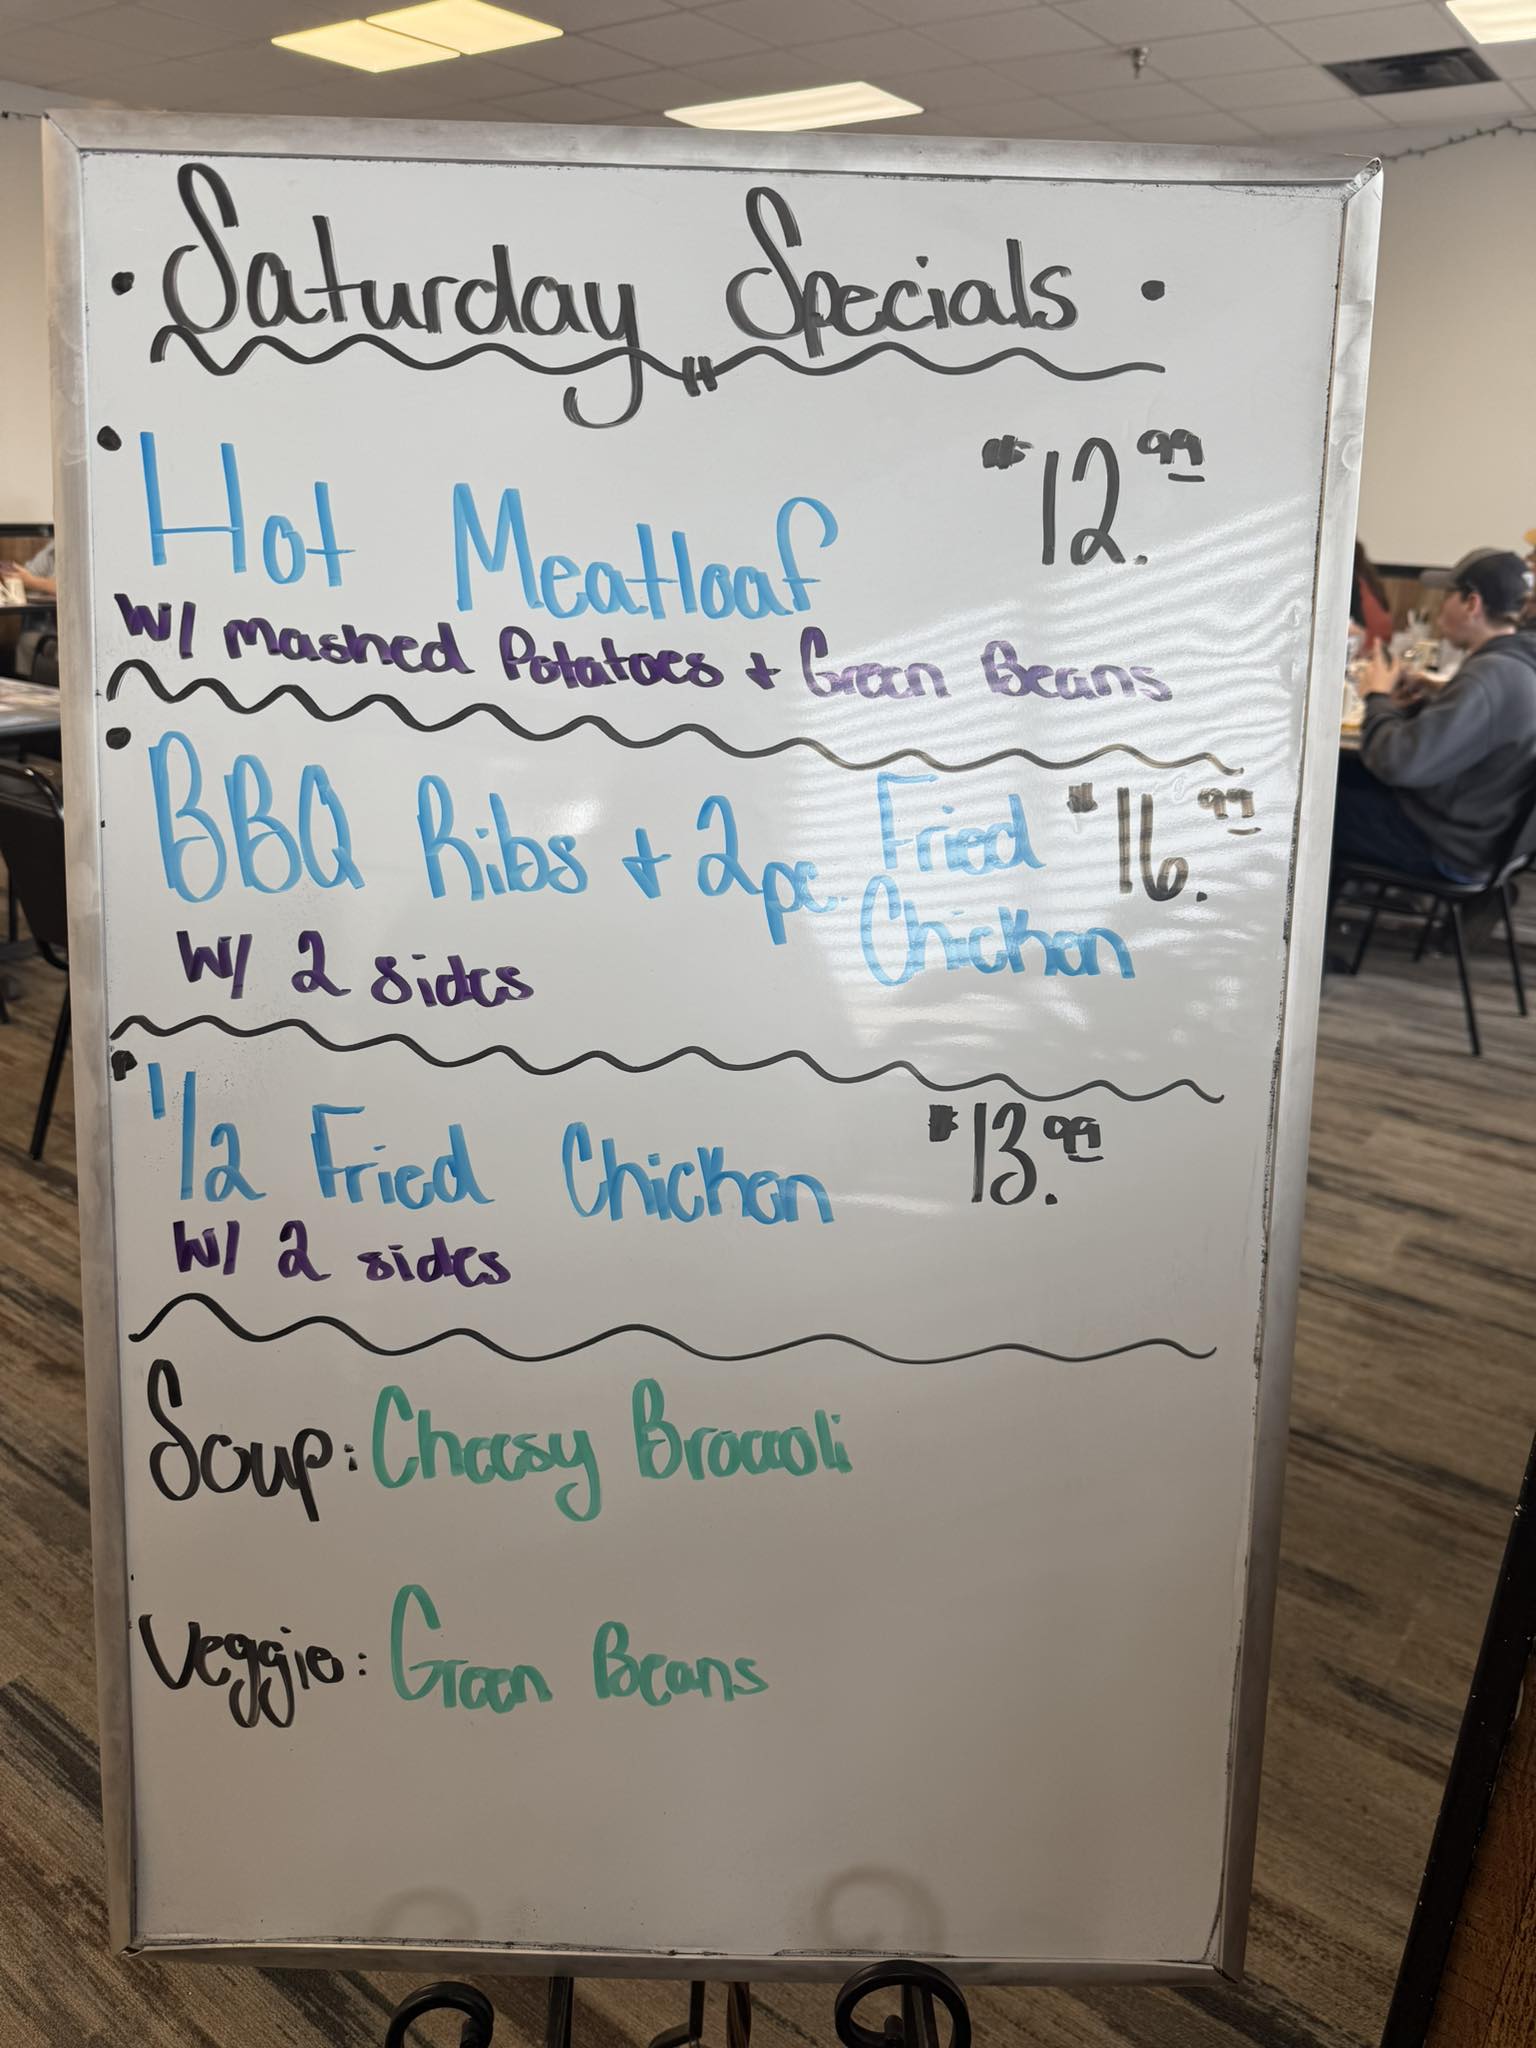 • Saturday Specials •
• Hot Meatloaf $12.99
W/ Mashed Potatoes + Green Beans
• BBQ Ribs + 2pc. Fried Chicken $16.99
W/ 2 sides
• 1/2 Fried Chicken $13.99
W/ 2 sides
Soup: Cheesy Broccoli
Veggie: Green Beans